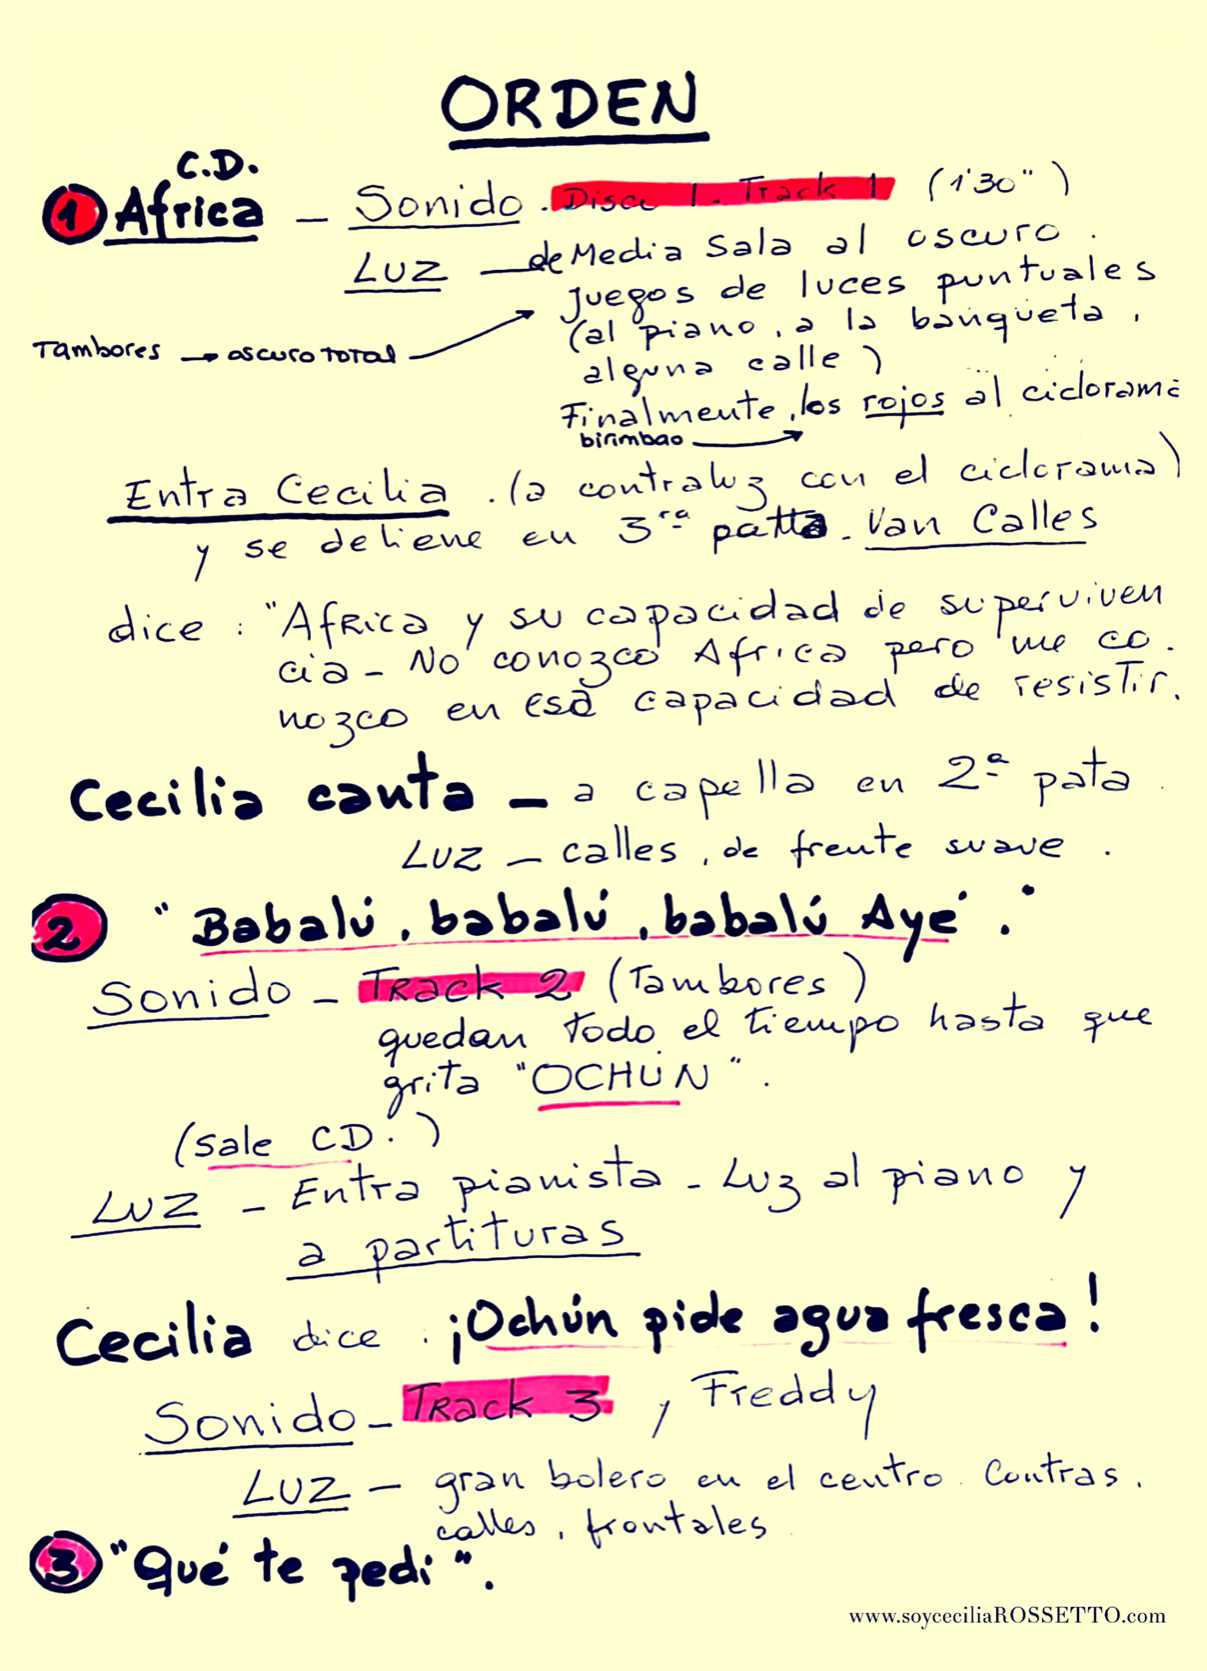 ORDEN
C.D.
1 Africa - Sonido. Disco 1. Track 1 (1'30")
LUZ - de Media Sala al oscuro.
Juegos de luces puntuales
(al piano, a la banqueta,
Tambores → oscuro total
alguna calle)
Finalmente, los rojos al ciclorama
birimbao
Entra Cecilia. (a contraluz con el ciclorama)
y se detiene en 3ra patta. Van Calles
dice: "Africa y su capacidad de superviven
cia - No conozco Africa pero me co.
nozco en esa capacidad de resistir.
Cecilia canta - a capella en 2ª pata.
LUZ - calles, de frente suave.
2 "Babalú, babalú, babalú Ayé."
Sonido - Track 2 (Tambores)
quedan todo el tiempo hasta que
grita "OCHÚN".
(sale CD.)
LUZ - Entra pianista - Luz al piano y
a partituras
Cecilia dice: ¡Ochún pide agua fresca!
Sonido - Track 3 y Freddy
LUZ - gran bolero en el centro. Contras,
calles, frontales
3 "Qué te pedí".
www.soyceciliaROSSETTO.com